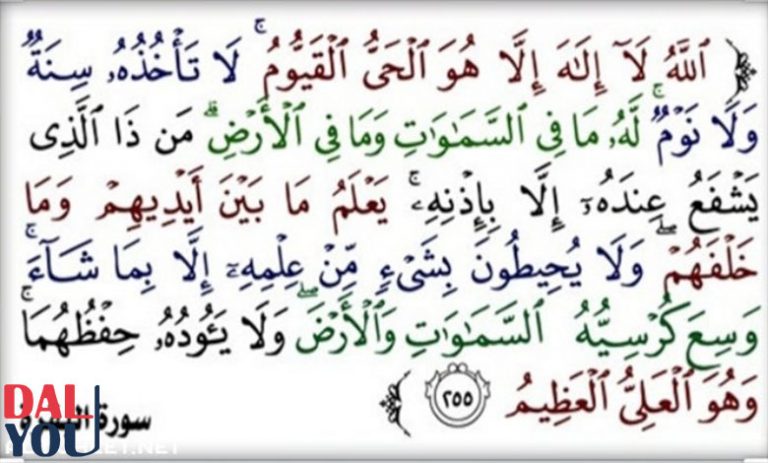 ﴿ ٱللَّهُ لَآ إِلَٰهَ إِلَّا هُوَ ٱلْحَىُّ ٱلْقَيُّومُ ۚ لَا تَأْخُذُهُۥ سِنَةٌ
وَلَا نَوْمٌ ۚ لَّهُۥ مَا فِى ٱلسَّمَٰوَٰتِ وَمَا فِى ٱلْأَرْضِ ۗ مَن ذَا ٱلَّذِى
يَشْفَعُ عِندَهُۥٓ إِلَّا بِإِذْنِهِۦ ۚ يَعْلَمُ مَا بَيْنَ أَيْدِيهِمْ وَمَا
خَلْفَهُمْ ۖ وَلَا يُحِيطُونَ بِشَىْءٍ مِّنْ عِلْمِهِۦٓ إِلَّا بِمَا شَآءَ ۚ
وَسِعَ كُرْسِيُّهُ ٱلسَّمَٰوَٰتِ وَٱلْأَرْضَ ۖ وَلَا يَـُٔودُهُۥ حِفْظُهُمَا ۚ
وَهُوَ ٱلْعَلِىُّ ٱلْعَظِيمُ ٢٥٥ ﴾
سورة البقرة
DAL
YOU
.NET